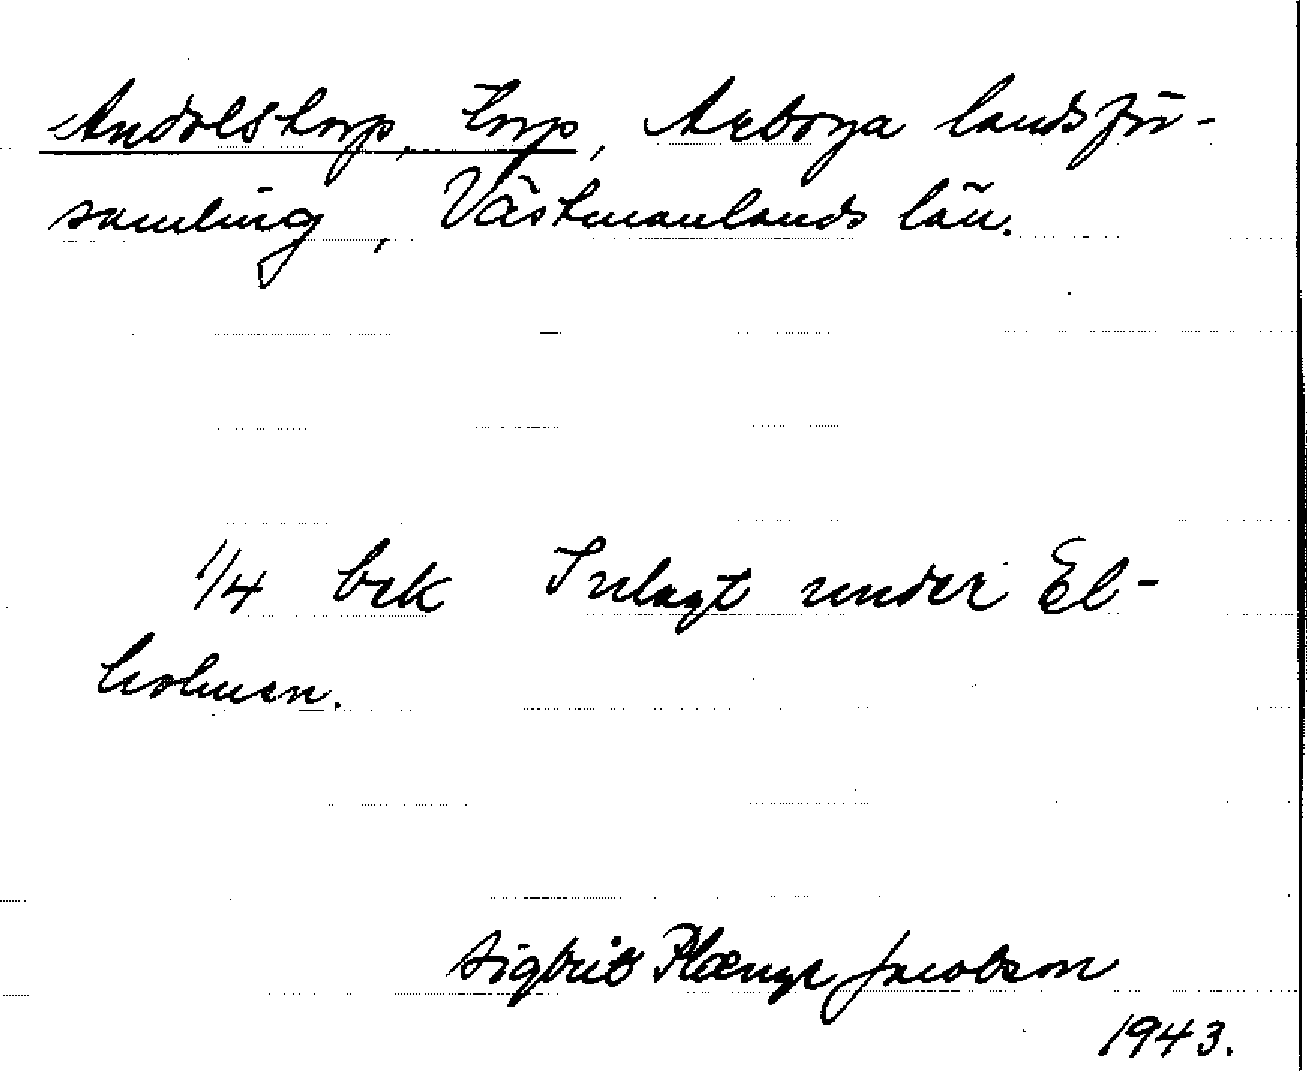 Andolstorp, torp, Arboga landsför-
samling, Västmanlands län.
1/4 brk Inlagt under El-
holmen.
Sigbrit Plænge Jacobson
1943.